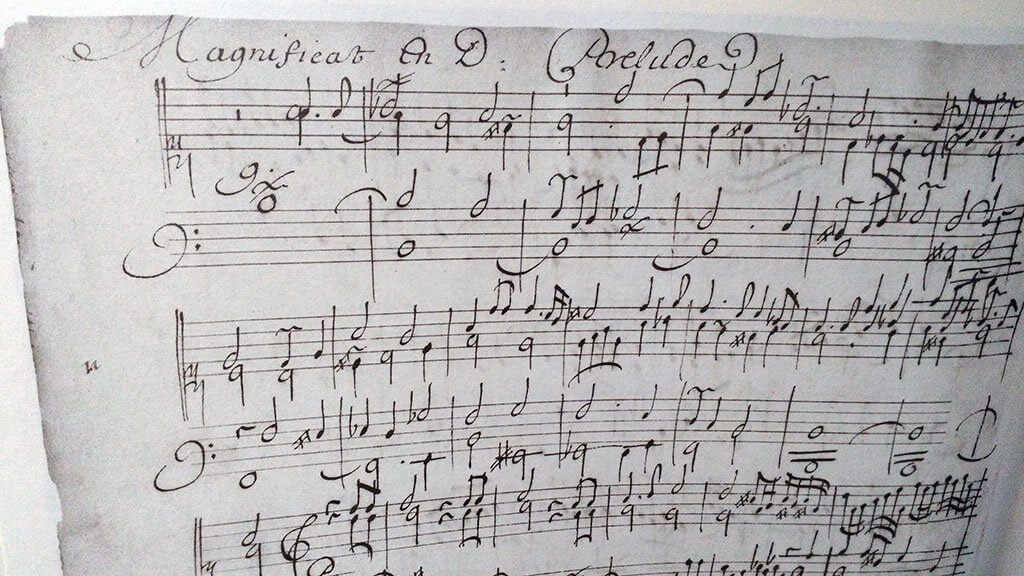 Magnificat En D: Prelude